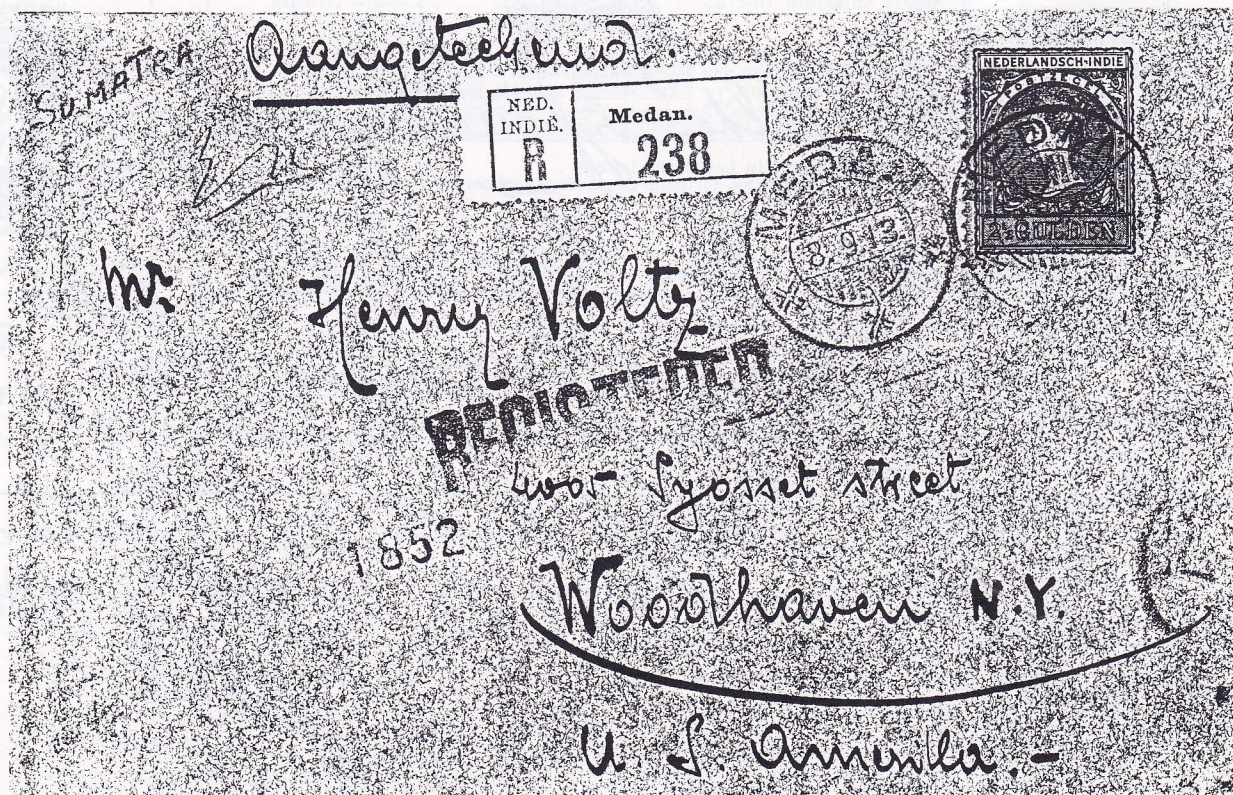 SUMATRA
Aangeteekend.
NED. INDIË. R
Medan. 238
NEDERLANDSCH-INDIE
POSTZEGEL
2½ GULDEN
MEDAN
8.9.13.
Mr. Henry Voltz
REGISTERED
Syosset street
1852
Woodhaven N.Y.
U.S. Amerika.-